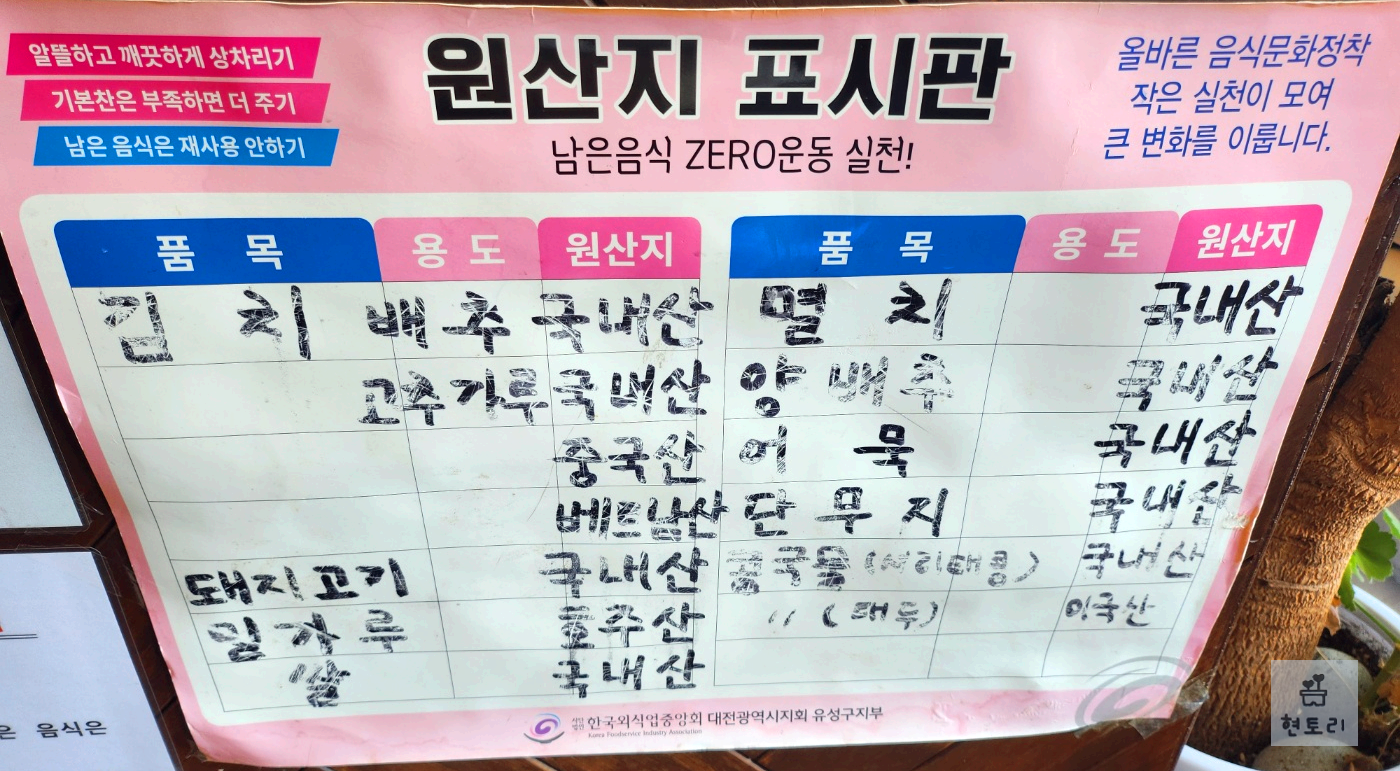 알뜰하고 깨끗하게 상차리기
기본찬은 부족하면 더 주기
남은 음식은 재사용 안하기
원산지 표시판
남은음식 ZERO운동 실천!
올바른 음식문화정착
작은 실천이 모여
큰 변화를 이룹니다.
품 목 용 도 원산지
김 치 배추 국내산
고추가루 국내산
중국산
베트남산
돼지고기 국내산
밀가루 호주산
쌀 국내산
품 목 용 도 원산지
멸 치 국내산
양배추 국내산
어 묵 국내산
단무지 국내산
콩국물 (서리태콩) 국내산
〃 (대두) 미국산
사단법인 한국외식업중앙회 대전광역시지회 유성구지부
Korea Foodservice Industry Association
은 음식은
현토리